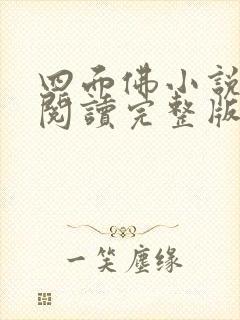 四面佛小說
閱讀完整版
一笑塵緣